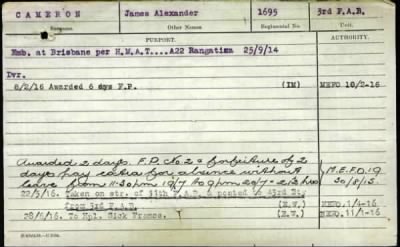 CAMERON James Alexander 1695 3rd F.A.B.
Surname. Other Names. Regimental No. Unit.
PURPORT. AUTHORITY.
Emb. at Brisbane per H.M.A.T....A22 Rangatira 25/9/14
Dvr.
8/2/16 Awarded 6 dys F.P. (IM) MEFO 10/2-16
Awarded 2 days. F.P. No 2 & forfeiture of 2
days pay extra for absence without M.E.F.O. 19
leave from 11-30pm 19/7 to 9pm 20/7 = 21½ hrs 30/8/15.
22/3/16. Taken on str. of 11th F.A.B. & posted to 43rd Bt.
from 3rd F.A.B. (E.W.) MEFO. 1/4-16
28/6/16. To Hpl. Sick France. (E.W.) MEFO. 11/1-16